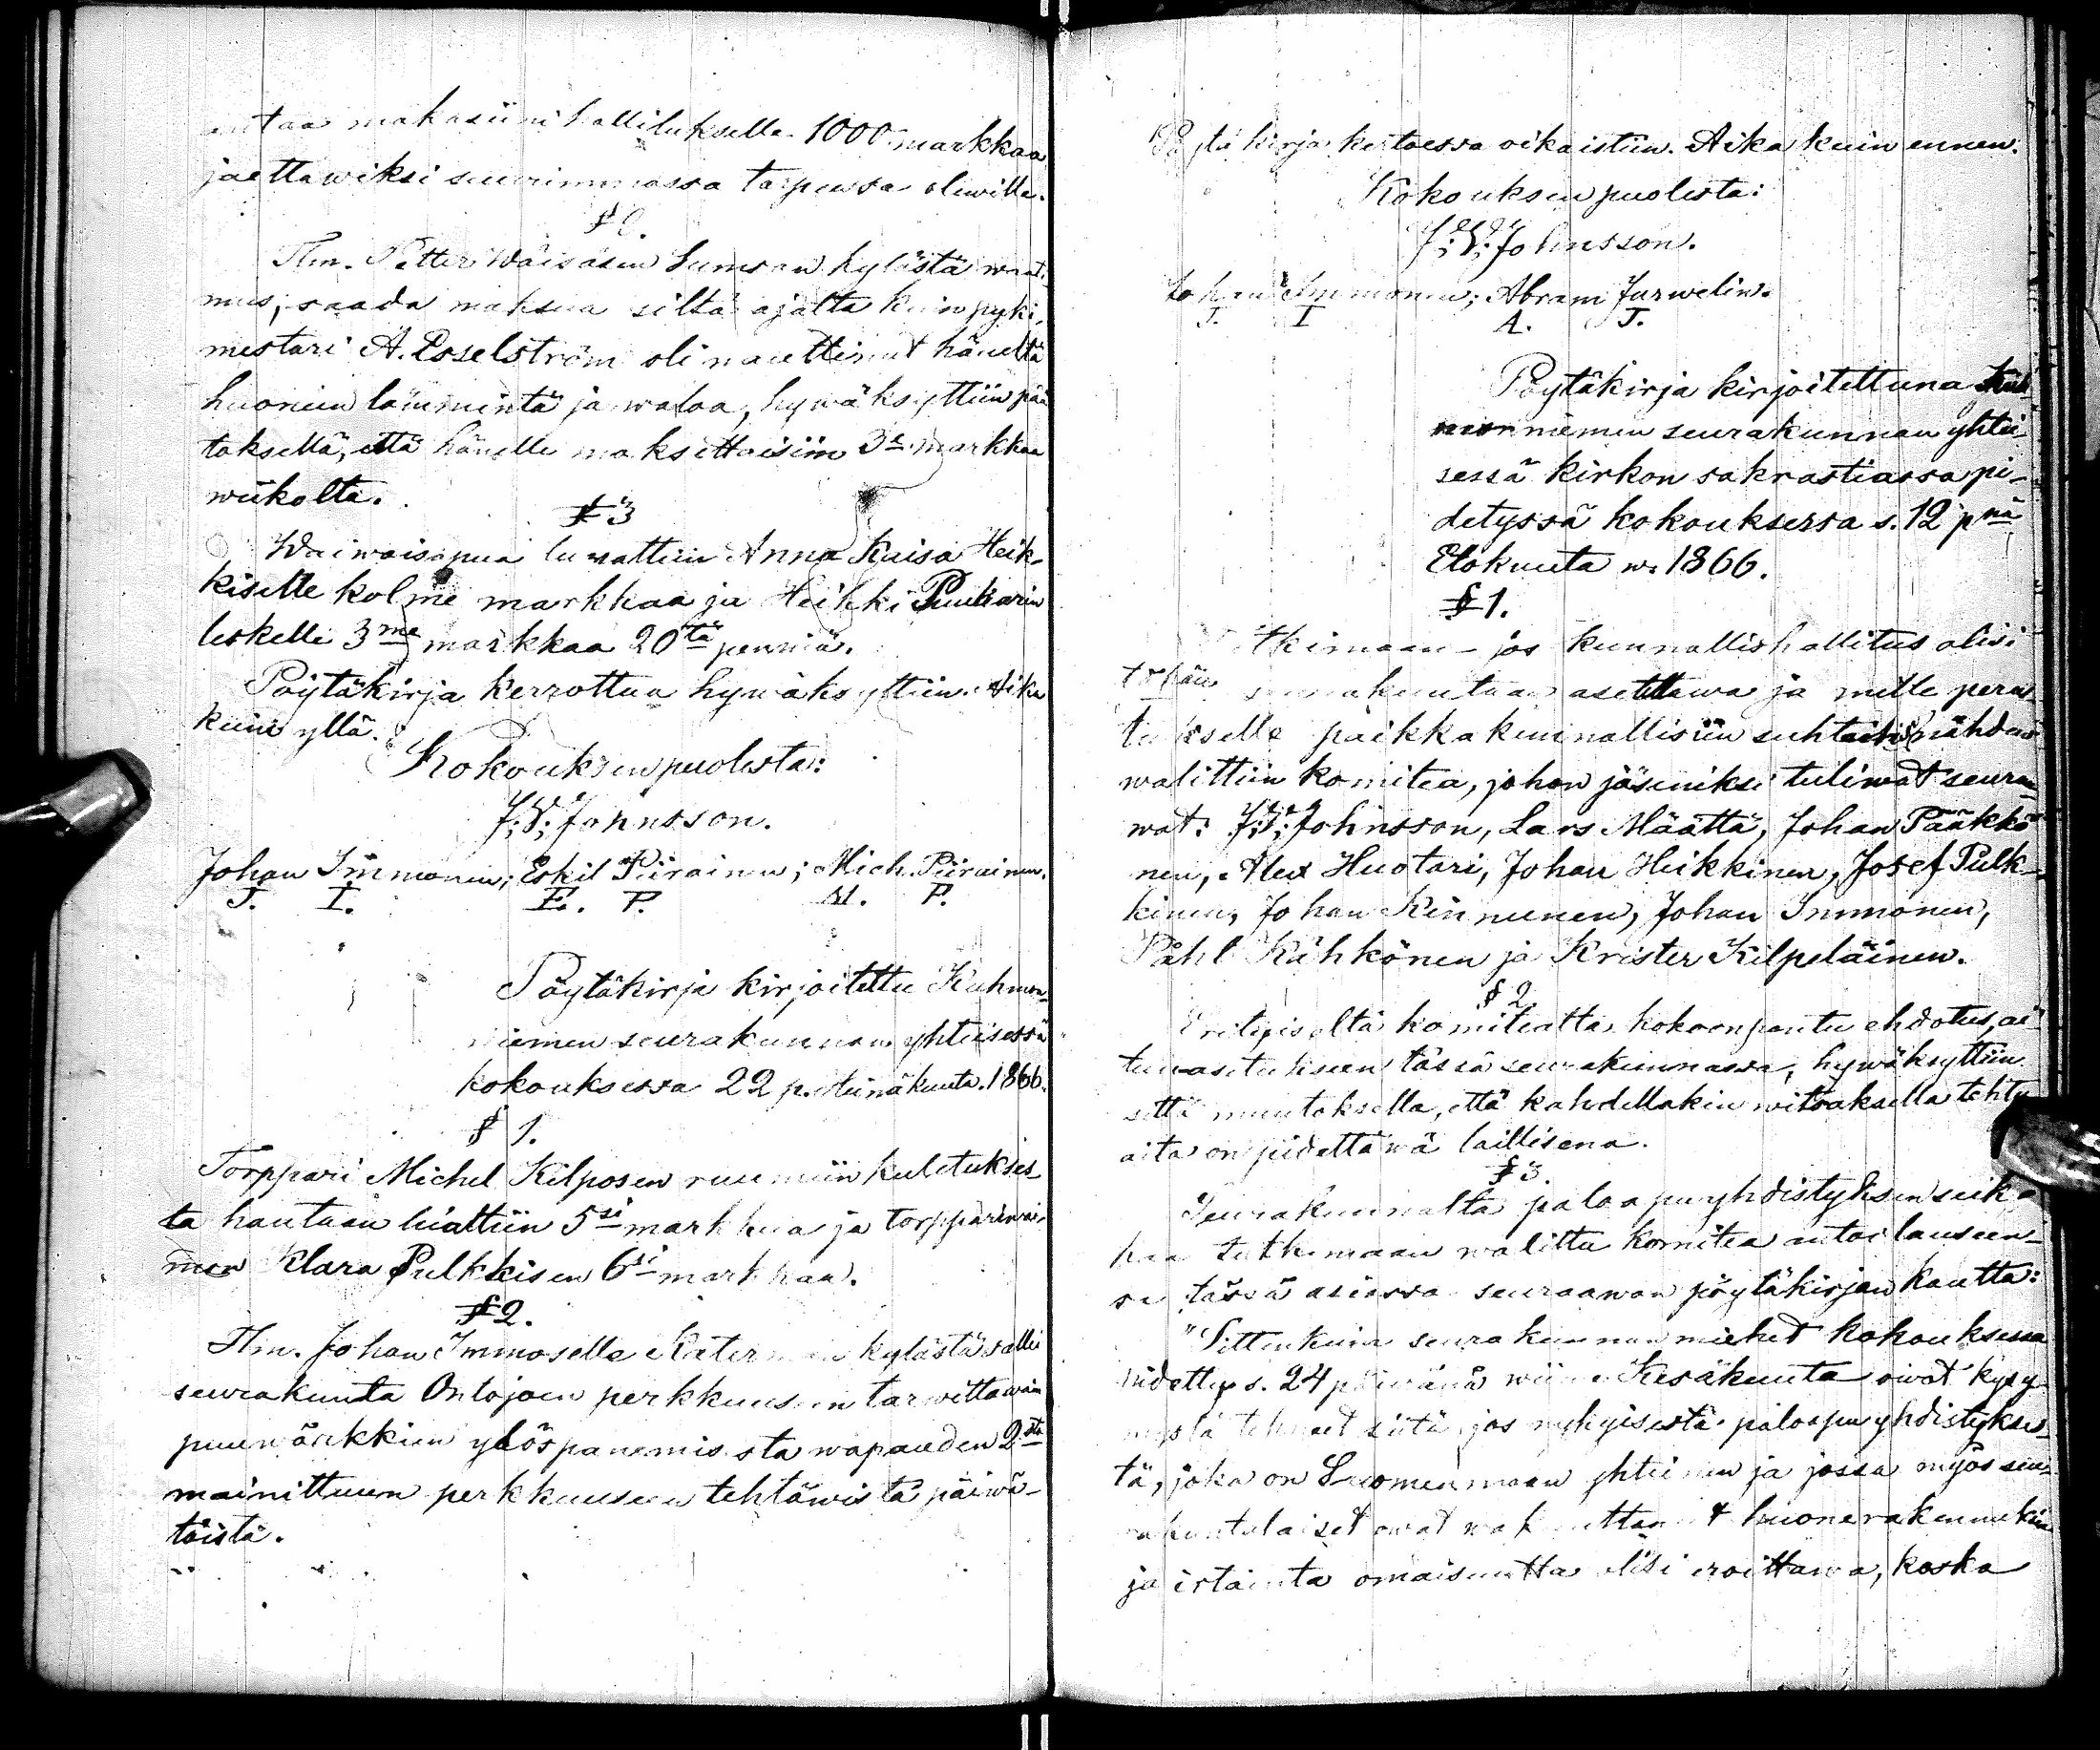 antaa makasiini hallitukselle 1000 markkaa
jaettawiksi suurimmassa tarpeessa olewille.
§ 2.
Tlm. Petter Wäisäsen Lumson kylästä waati-
mus, saada maksua siltä ajalta kuin pyki-
mestari A. Esselström oli nauttinut häneltä
huoneen lämmintä ja waloa, hywäksyttiin pää
töksellä, että hänelle maksettaisiin 3e markkaa
wiikolta.
§ 3
Waiwaisapua luwattiin Anna Kaisa Heik-
kiselle kolme markkaa ja Heikki Puukarin
leskelle 3me markkaa 20tä penniä.
Pöytäkirja kerrottua hywäksyttiin. Aika
kuin yllä.
Kokouksen puolesta:
J: V: Johnsson.
Johan Immonen; Eskil Piirainen; Mich. Piirainen.
J. I. E. P. M. P.
Pöytäkirja kirjoitettu Kuhmon-
niemen seurakunnan yhteisessä
kokouksessa 22 p. Heinäkuuta 1866.
§ 1.
Torppari Michel Kilposen ruumiin kuletukses-
ta hautaan luattiin 5si markkaa ja torpparinwai-
mon Klara Pulkkisen 6si markkaa.
§ 2.
Tlm. Johan Immoselle Katerman kylästä salli
seurakunta Ontojoen perkkuuseen tarwittawain
puuwärkkien ylöspanemisesta wapauden 2sta
mainittuun perkkuuseen tehtäwistä päiwä-
töistä.
Pöytäkirja kertoessa oikaistiin. Aika kuin ennen.
Kokouksen puolesta:
J: V: Johnsson.
Johan Immonen; Abram Jurwelin.
J. I A. J.
Pöytäkirja kirjoitettuna Kuh
mon niemen seurakunnan yhtei-
sessä kirkon sakrastiassa pi-
detyssä kokouksessa s. 12 pnä
Elokuuta w. 1866.
§ 1.
Tutkimaan - jos kunnallishallitus olisi
tähän seurakuntaan asetettawa ja mille perus
tukselle paikkakunnallisiin suhteisiin nähden
walittiin komitea, johon jäseniksi tuliwat seuraa-
wat: J: V: Johnsson, Lars Määttä, Johan Pääkkö
nen, Alex Huotari, Johan Heikkinen, Josef Pulk-
kinen, Johan Kinnunen, Johan Immonen,
Påhl Kähkönen ja Krister Kilpeläinen.
§ 2
Erityiseltä komitealta kokoonpantu ehdotus, ai
tuusasetukseen tässä seurakunnassa, hywäksyttiin
sillä muutoksella, että kahdellakin witsaksella tehty
aita on pidettäwä laillisena.
§ 3.
Seurakunnalta paloapuyhdistyksen seik-
kaa tutkimaan walittu komitea antoi lauseen-
sa tässä asiassa seuraawan pöytäkirjan kautta:
"Sittenkuin seurakunnan miehet kokouksessa
pidetty s. 24 päiwänä wiime Kesäkuuta oiwat kysy
mystä tehneet siitä jos nykyisestä paloapuyhdistykses-
tä, joka on Suomenmaan yhteinen ja jossa myös seu-
rakuntalaiset owat wakuuttaneet huonerakennuksia
ja irtainta omaisuutta olisi eroittawa, koska